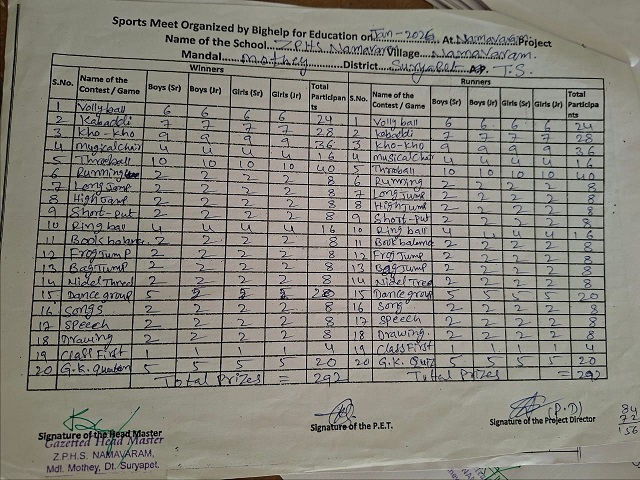 Sports Meet Organized by Bighelp for Education on Jan-2026 At Namavaram Project
Name of the School Z.P.H.S Namavaram Village Namavaram.
Mandal Mothey District Suryapet A.P. T.S.
Winners Runners
S.No. Name of the Contest / Game Boys (Sr) Boys (Jr) Girls (Sr) Girls (Jr) Total Participants S.No. Name of the Contest / Game Boys (Sr) Boys (Jr) Girls (Sr) Girls (Jr) Total Participants
1 Volly ball 6 6 6 6 24 1 Volly ball 6 6 6 6 24
2 Kabaddi 7 7 7 7 28 2 Kabaddi 7 7 7 7 28
3 Kho-kho 9 9 9 9 36 3 Kho-kho 9 9 9 9 36
4 musical chair 4 4 4 4 16 4 musical chair 4 4 4 4 16
5 Throwball 10 10 10 10 40 5 Throwball 10 10 10 10 40
6 Running 2 2 2 2 8 6 Running 2 2 2 2 8
7 Long Jump 2 2 2 2 8 7 Long Jump 2 2 2 2 8
8 High Jump 2 2 2 2 8 8 High Jump 2 2 2 2 8
9 Short-put 2 2 2 2 8 9 Short-put 2 2 2 2 8
10 Ring ball 4 4 4 4 16 10 Ring ball 4 4 4 4 16
11 Book balance 2 2 2 2 8 11 Book balance 2 2 2 2 8
12 Frog Jump 2 2 2 2 8 12 Frog Jump 2 2 2 2 8
13 Bag Jump 2 2 2 2 8 13 Bag Jump 2 2 2 2 8
14 Nidel Thred 2 2 2 2 8 14 Nidel Tred 2 2 2 2 8
15 Dance group 5 20 15 Dance group 5 5 5 5 20
16 Songs 2 2 2 2 8 16 Song 2 2 2 2 8
17 Speech 2 2 2 2 8 17 Speech 2 2 2 2 8
18 Drawing 2 2 2 2 8 18 Drawing. 2 2 2 2 8
19 Class First 1 1 1 1 4 19 Class First 1 1 1 1 4
20 G.K. 5 5 5 5 20 20 G.K. Quiz 5 5 5 5 20
Total Prizes = 292 Total Prizes = 292
(P.D)
Signature of the Head Master Signature of the P.E.T. Signature of the Project Director
Gazetted Head Master
Z.P.H.S. NAMAVARAM,
Mdl. Mothey, Dt. Suryapet.
84
72
156